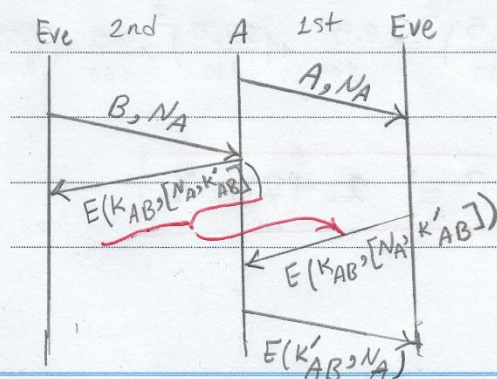 Eve 2nd A 1st Eve
A, NA
B, NA
E(KAB, [NA, K'AB]
E(KAB, [NA, K'AB])
E(K'AB, NA)